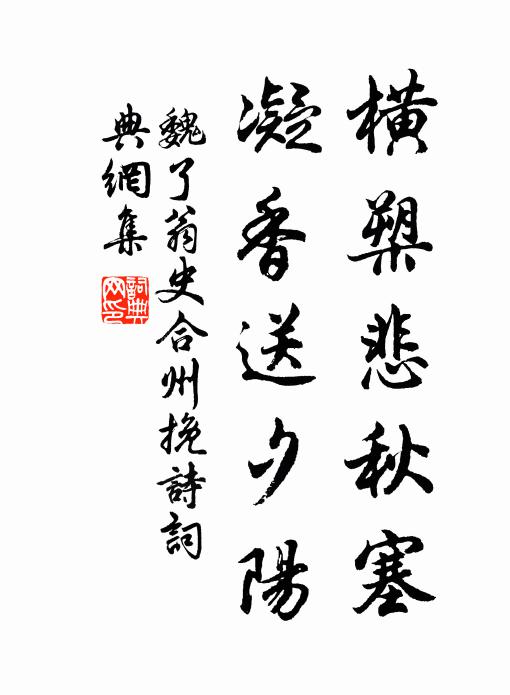 橫槊悲秋塞
凝香送夕陽
魏了翁史合州挽詩詞
典網集
詞典网印